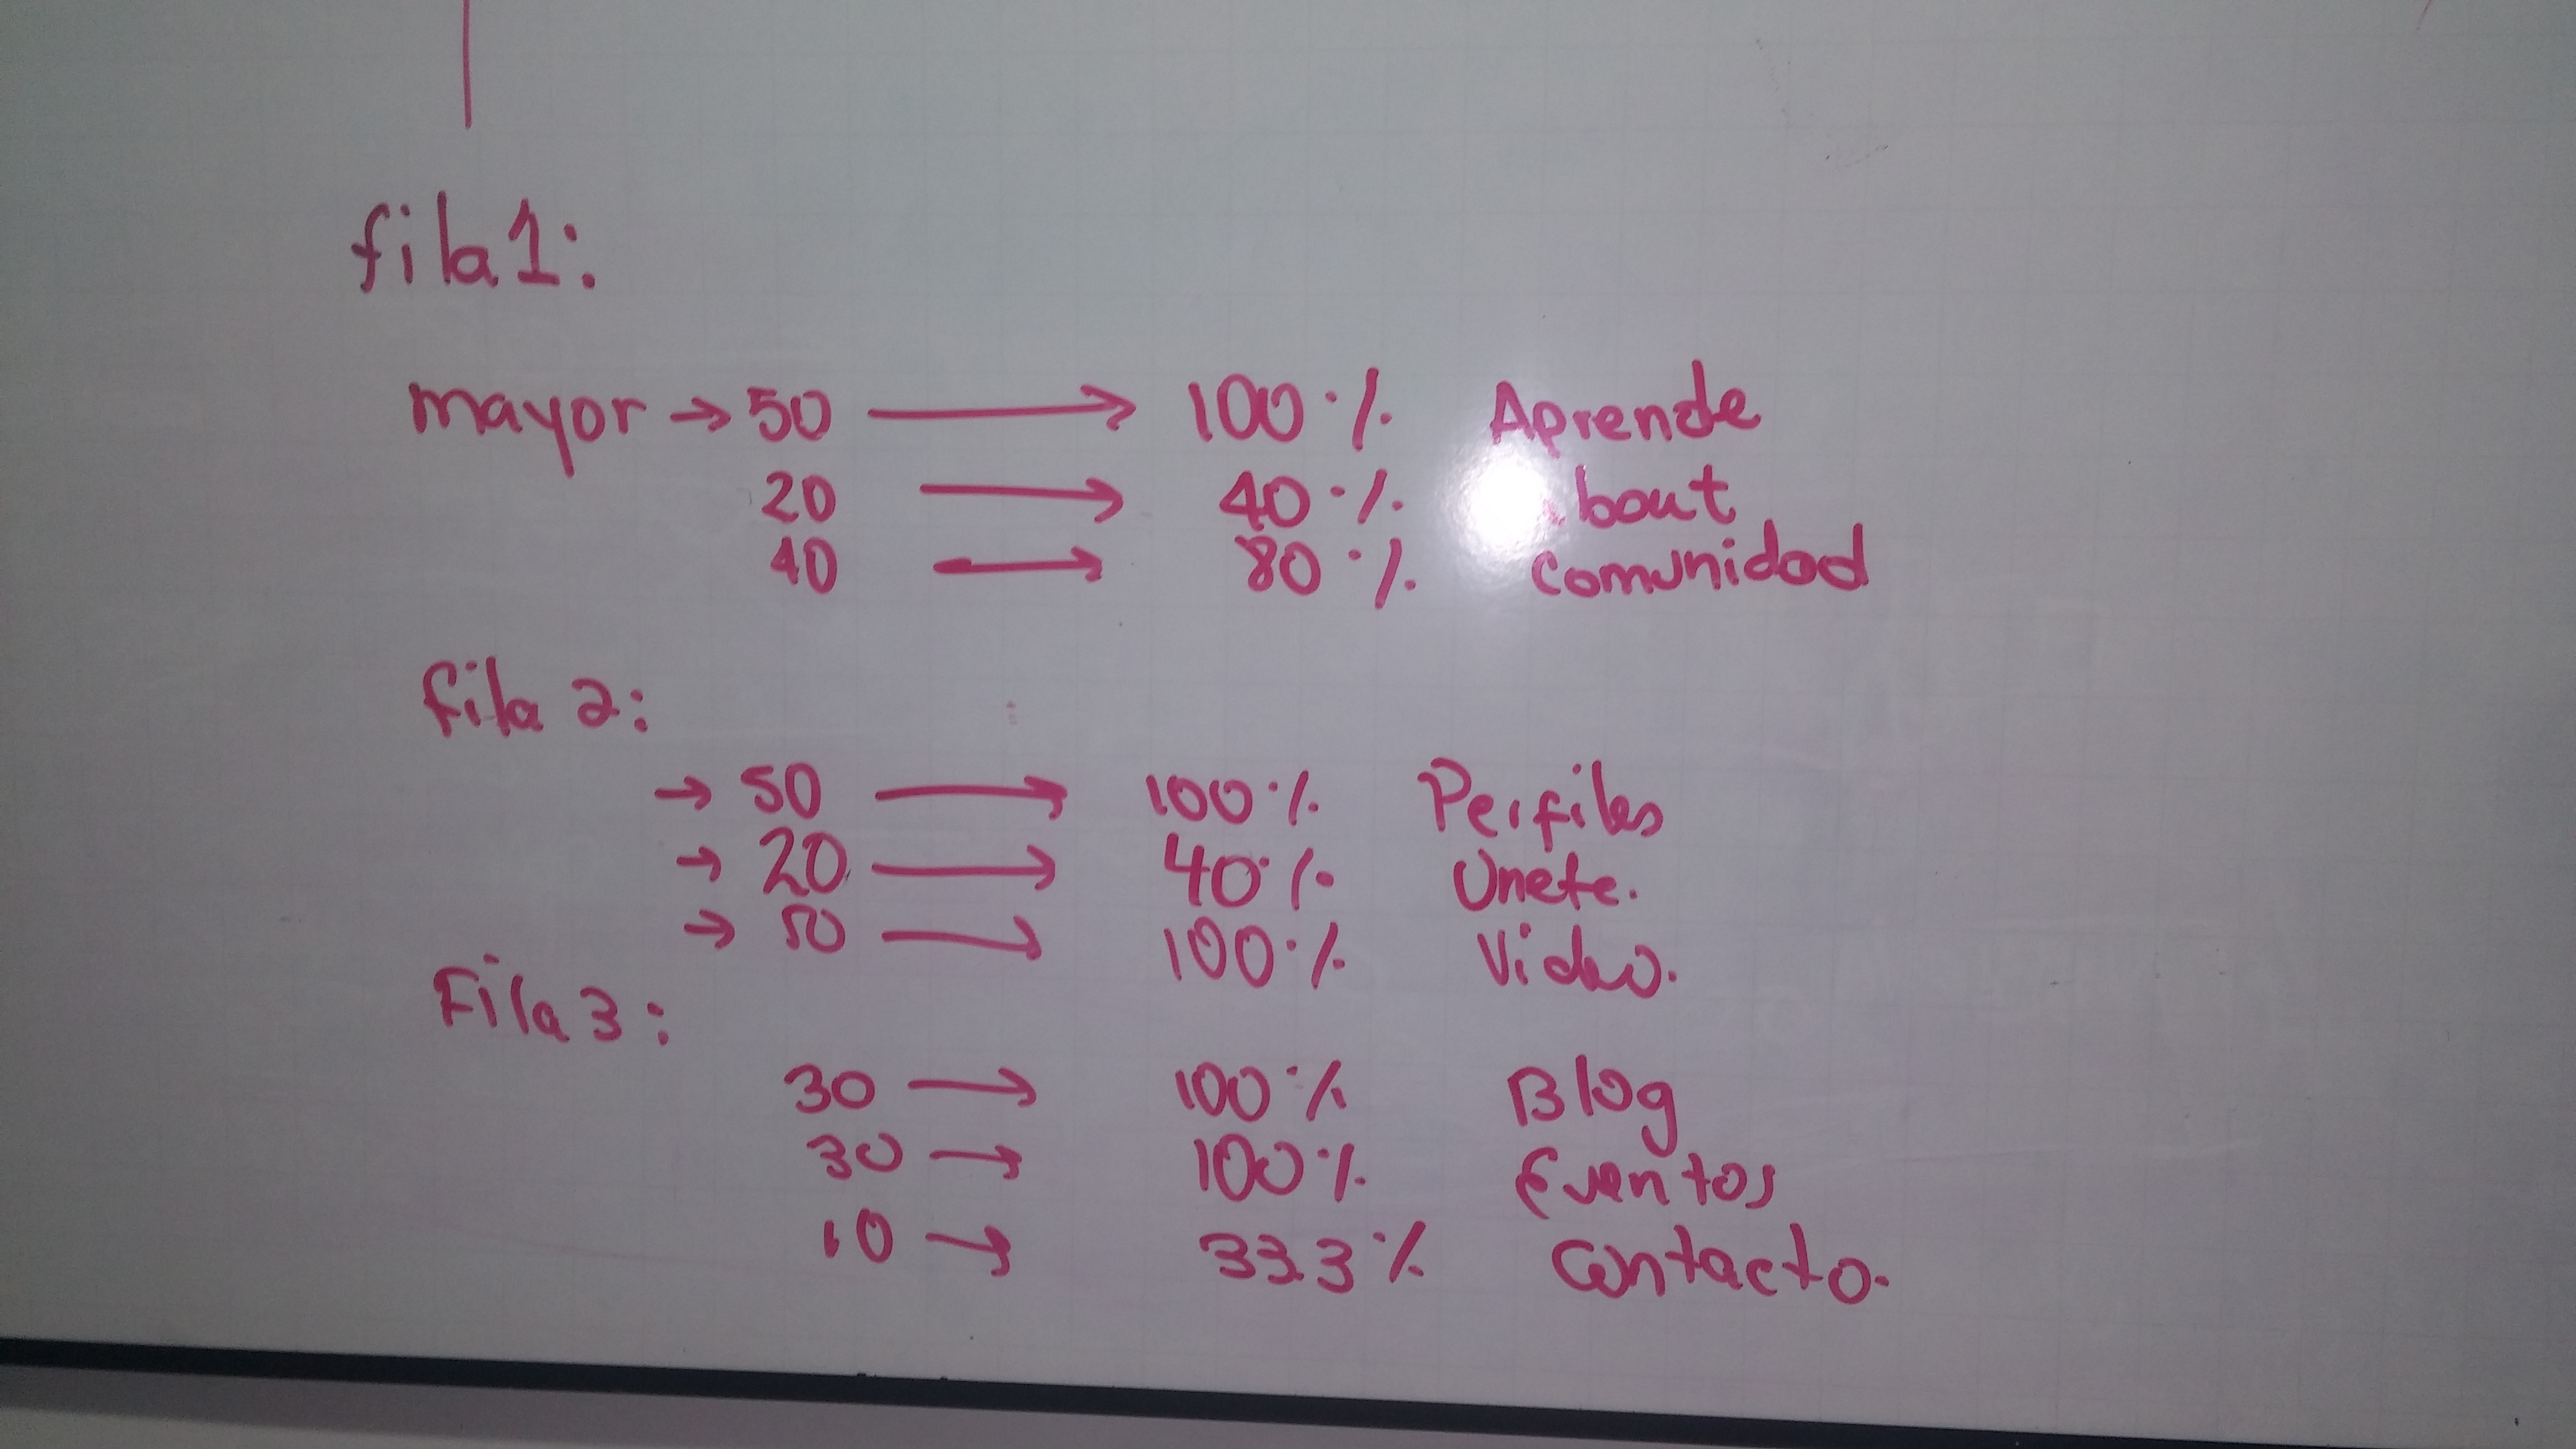 fila 1:
mayor → 50 → 100 % Aprende
20 → 40 % About
40 → 80 % Comunidad
fila 2:
→ 50 → 100 % Perfiles
→ 20 → 40 % Unete.
→ 50 → 100 % Video.
Fila 3:
30 → 100 % Blog
30 → 100 % Eventos
10 → 33.3 % Contacto.